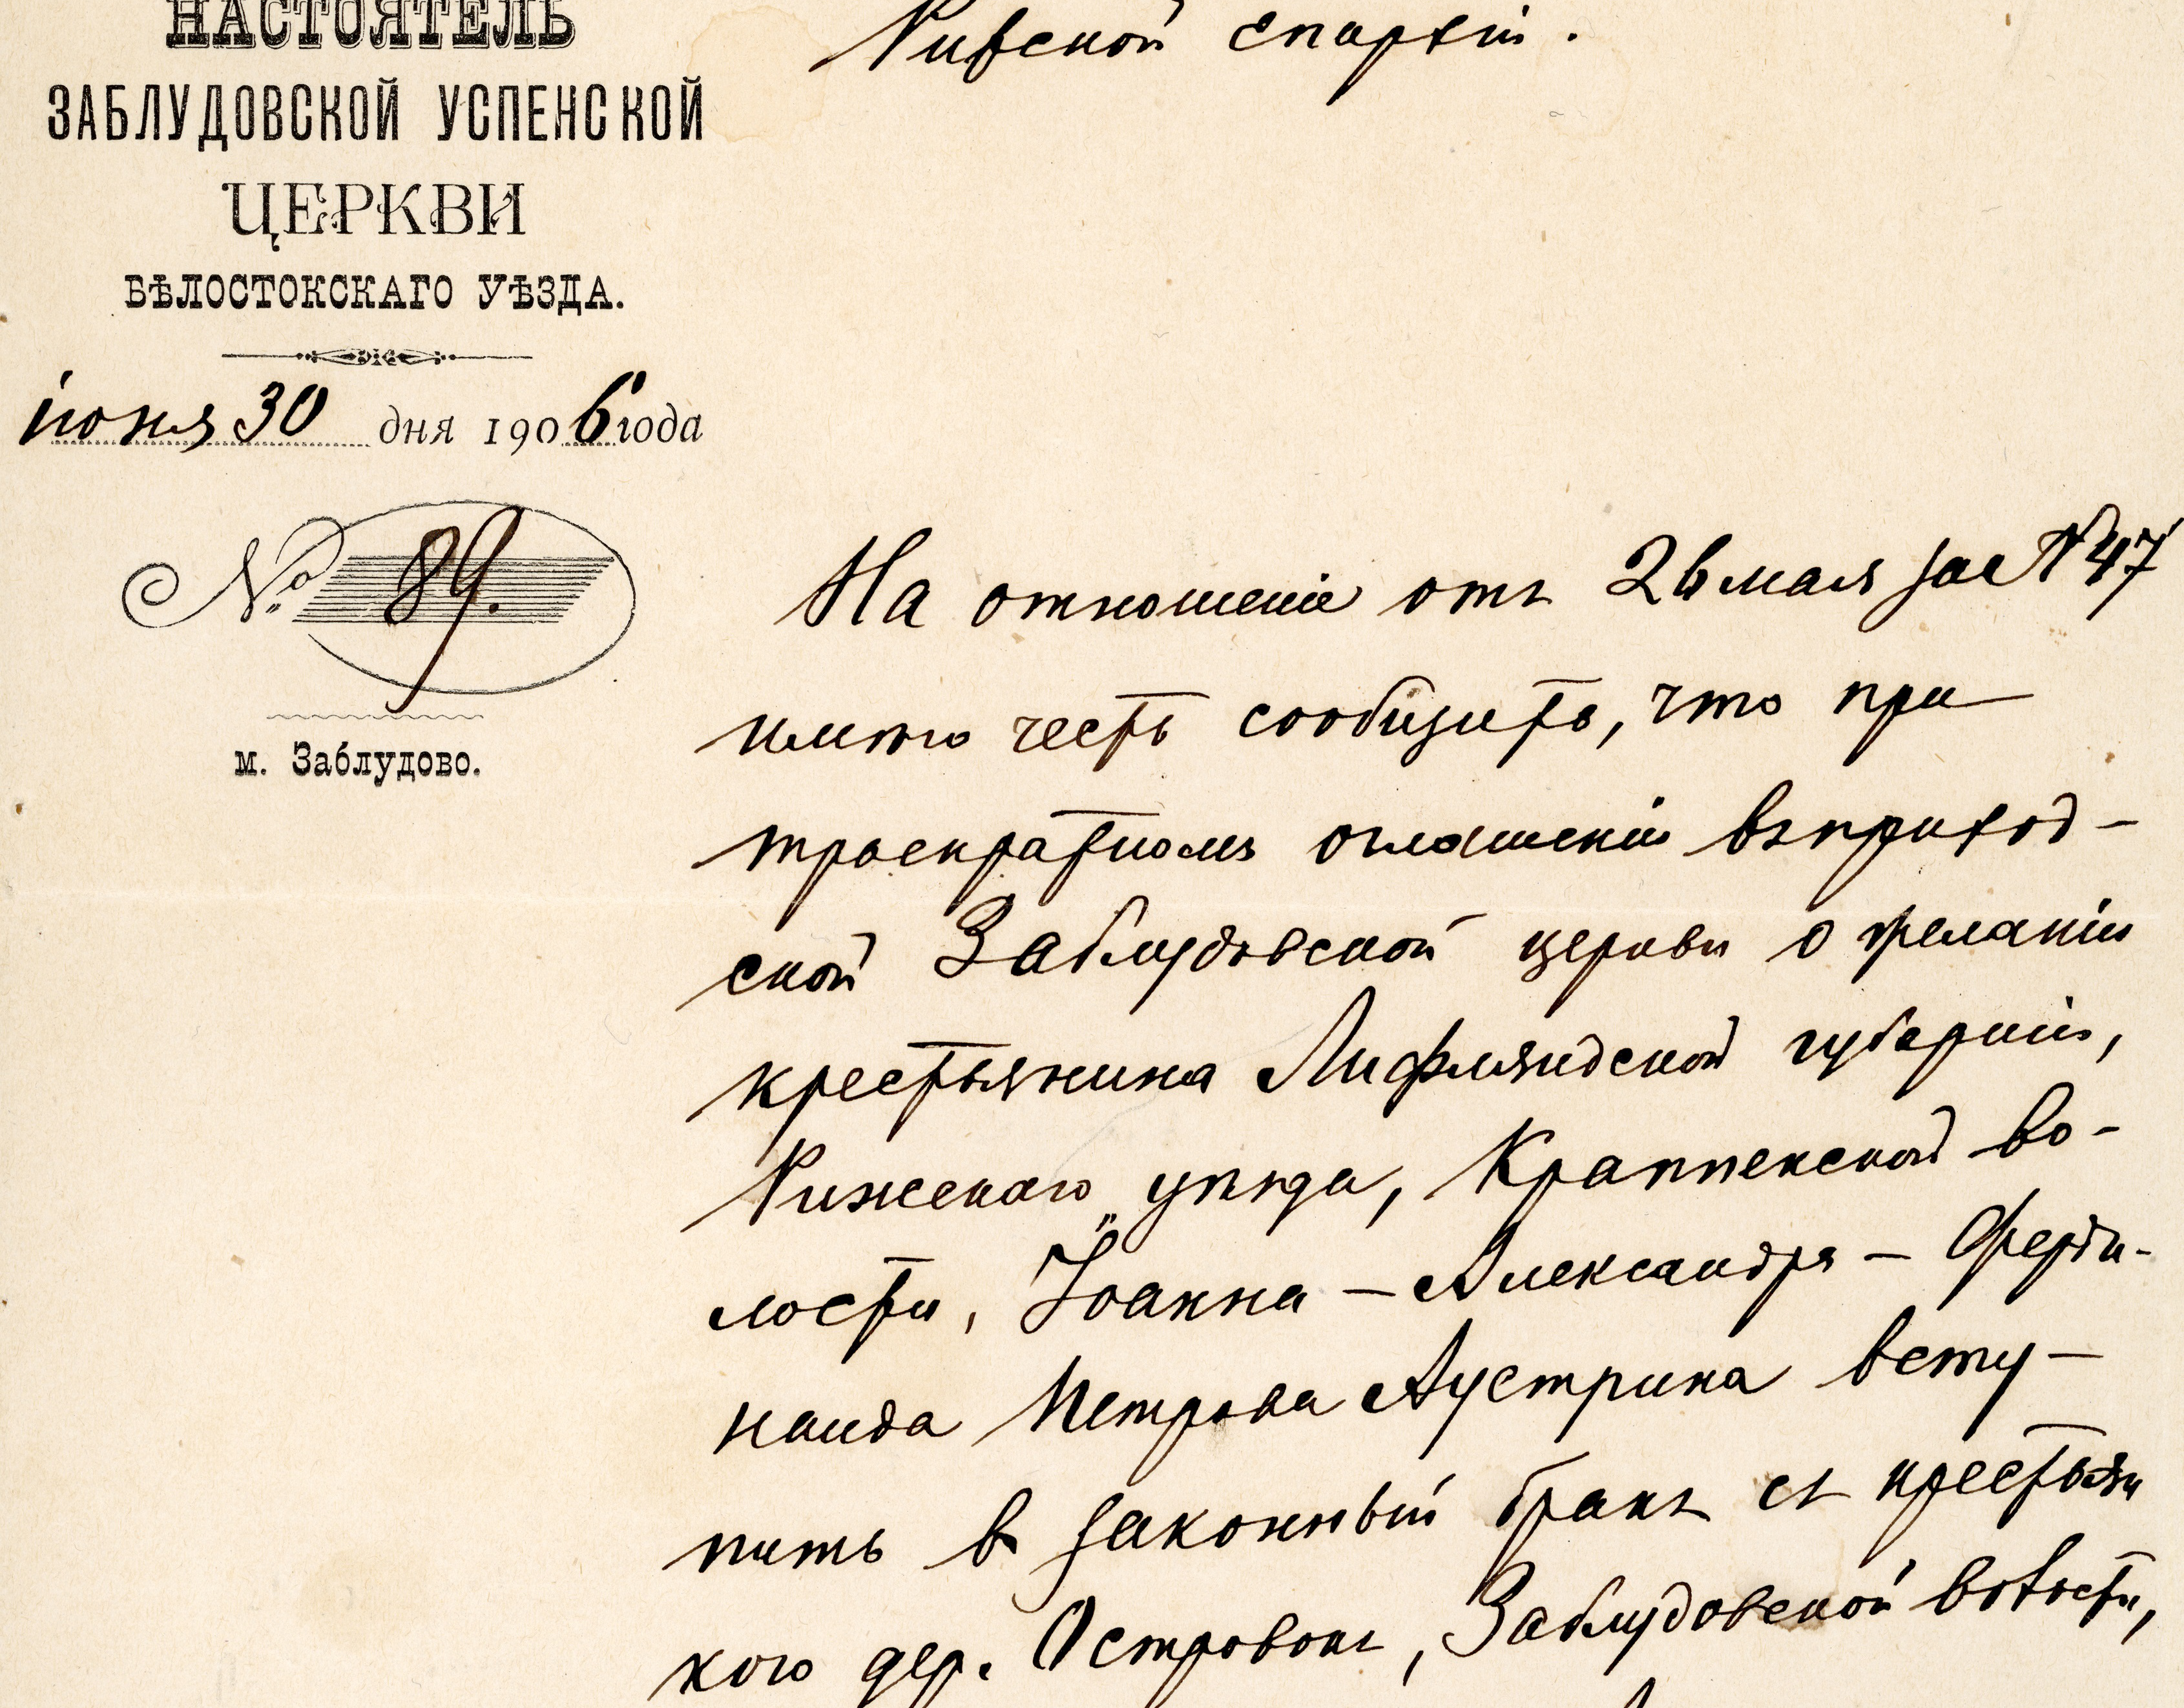 НАСТОЯТЕЛЬ
ЗАБЛУДОВСКОЙ УСПЕНСКОЙ
ЦЕРКВИ
БѢЛОСТОКСКАГО УѢЗДА.
іюня 30 дня 1906 года
№ 89.
м. Заблудово.
Рижской епархіи.
На отношеніе отъ 26 мая за № 47
имѣю честь сообщить, что при
троекратномъ оглашеніи въ приход-
ской Заблудовской церкви о желаніи
крестьянина Лифляндской губерніи,
Рижскаго уѣзда, Краппенской во-
лости, Іоанна - Александра - Ферди-
нанда Петрова Аустрина всту-
пить в законный бракъ съ крестьян
кою дер. Островокъ, Заблудовской волости,